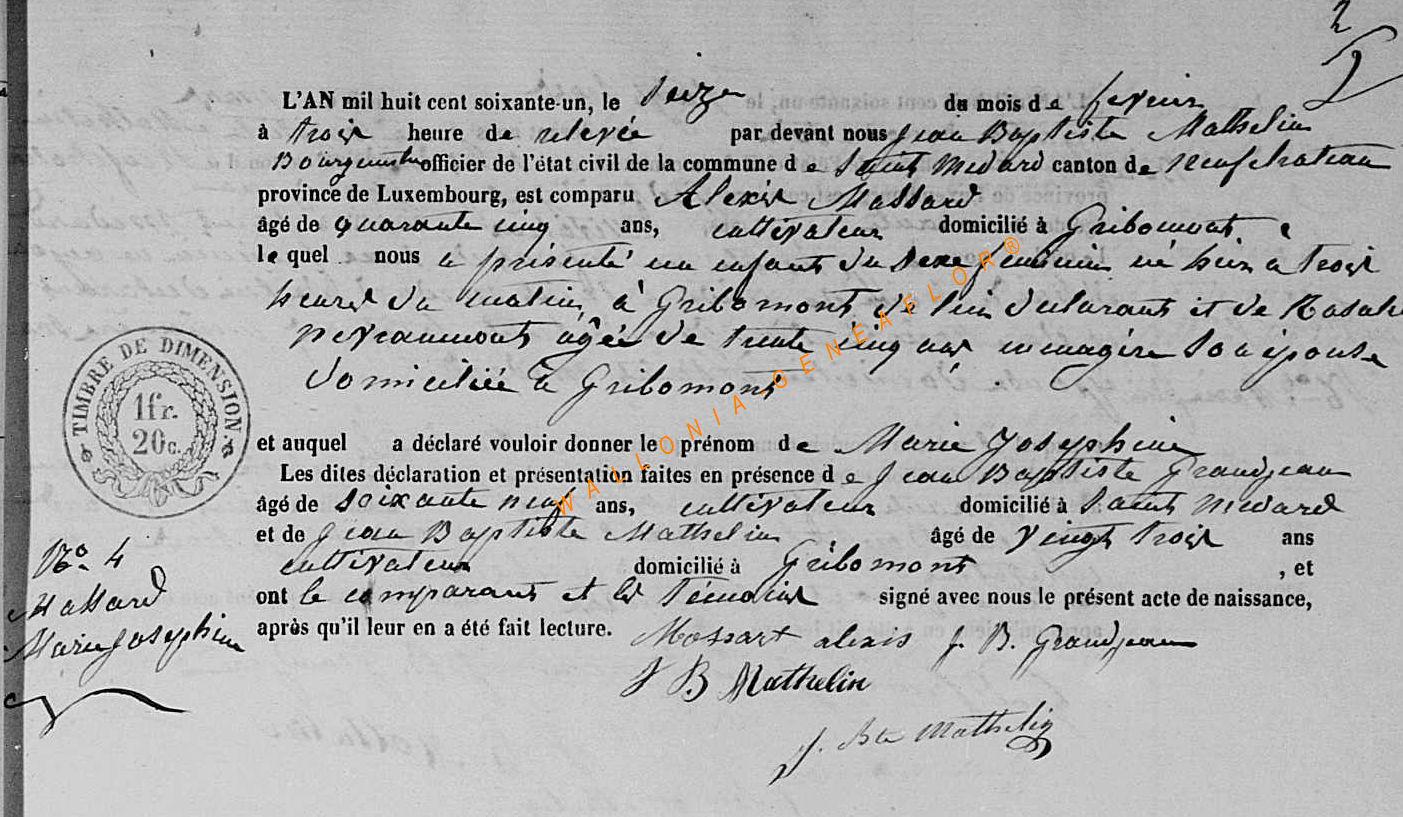 2
2
L'AN mil huit cent soixante-un, le seize du mois de fevrier
à trois heure de relevée par devant nous Jean Baptiste Mathelin
Bourgmestre officier de l'état civil de la commune de Saint Médard canton de neufchateau
province de Luxembourg, est comparu Alexis Massard
âgé de quarante cinq ans, cultivateur domicilié à Gribomont
lequel nous a présenté un enfant du sexe feminin né hier a trois
heures du matin à Gribomont, de lui declarant et de Rosalie
âgée de trente cinq ans menagère son épouse
domiciliée à Gribomont
TIMBRE DE DIMENSION
1fr.
20c.
et auquel a déclaré vouloir donner le prénom de Marie Josephine
Les dites déclaration et présentation faites en présence de Jean Baptiste Grandjean
âgé de soixante neuf ans, cultivateur domicilié à Saint Médard
et de Jean Baptiste Mathelin âgé de vingt trois ans
cultivateur domicilié à Gribomont , et
ont le comparant et les témoins signé avec nous le présent acte de naissance,
après qu'il leur en a été fait lecture. Mossart alexis J. B. Grandjean
J B Mathelin
J. Bte Mathelin
No. 4
Massard
Marie Josephine
WALLONIA GENEAFLOR®